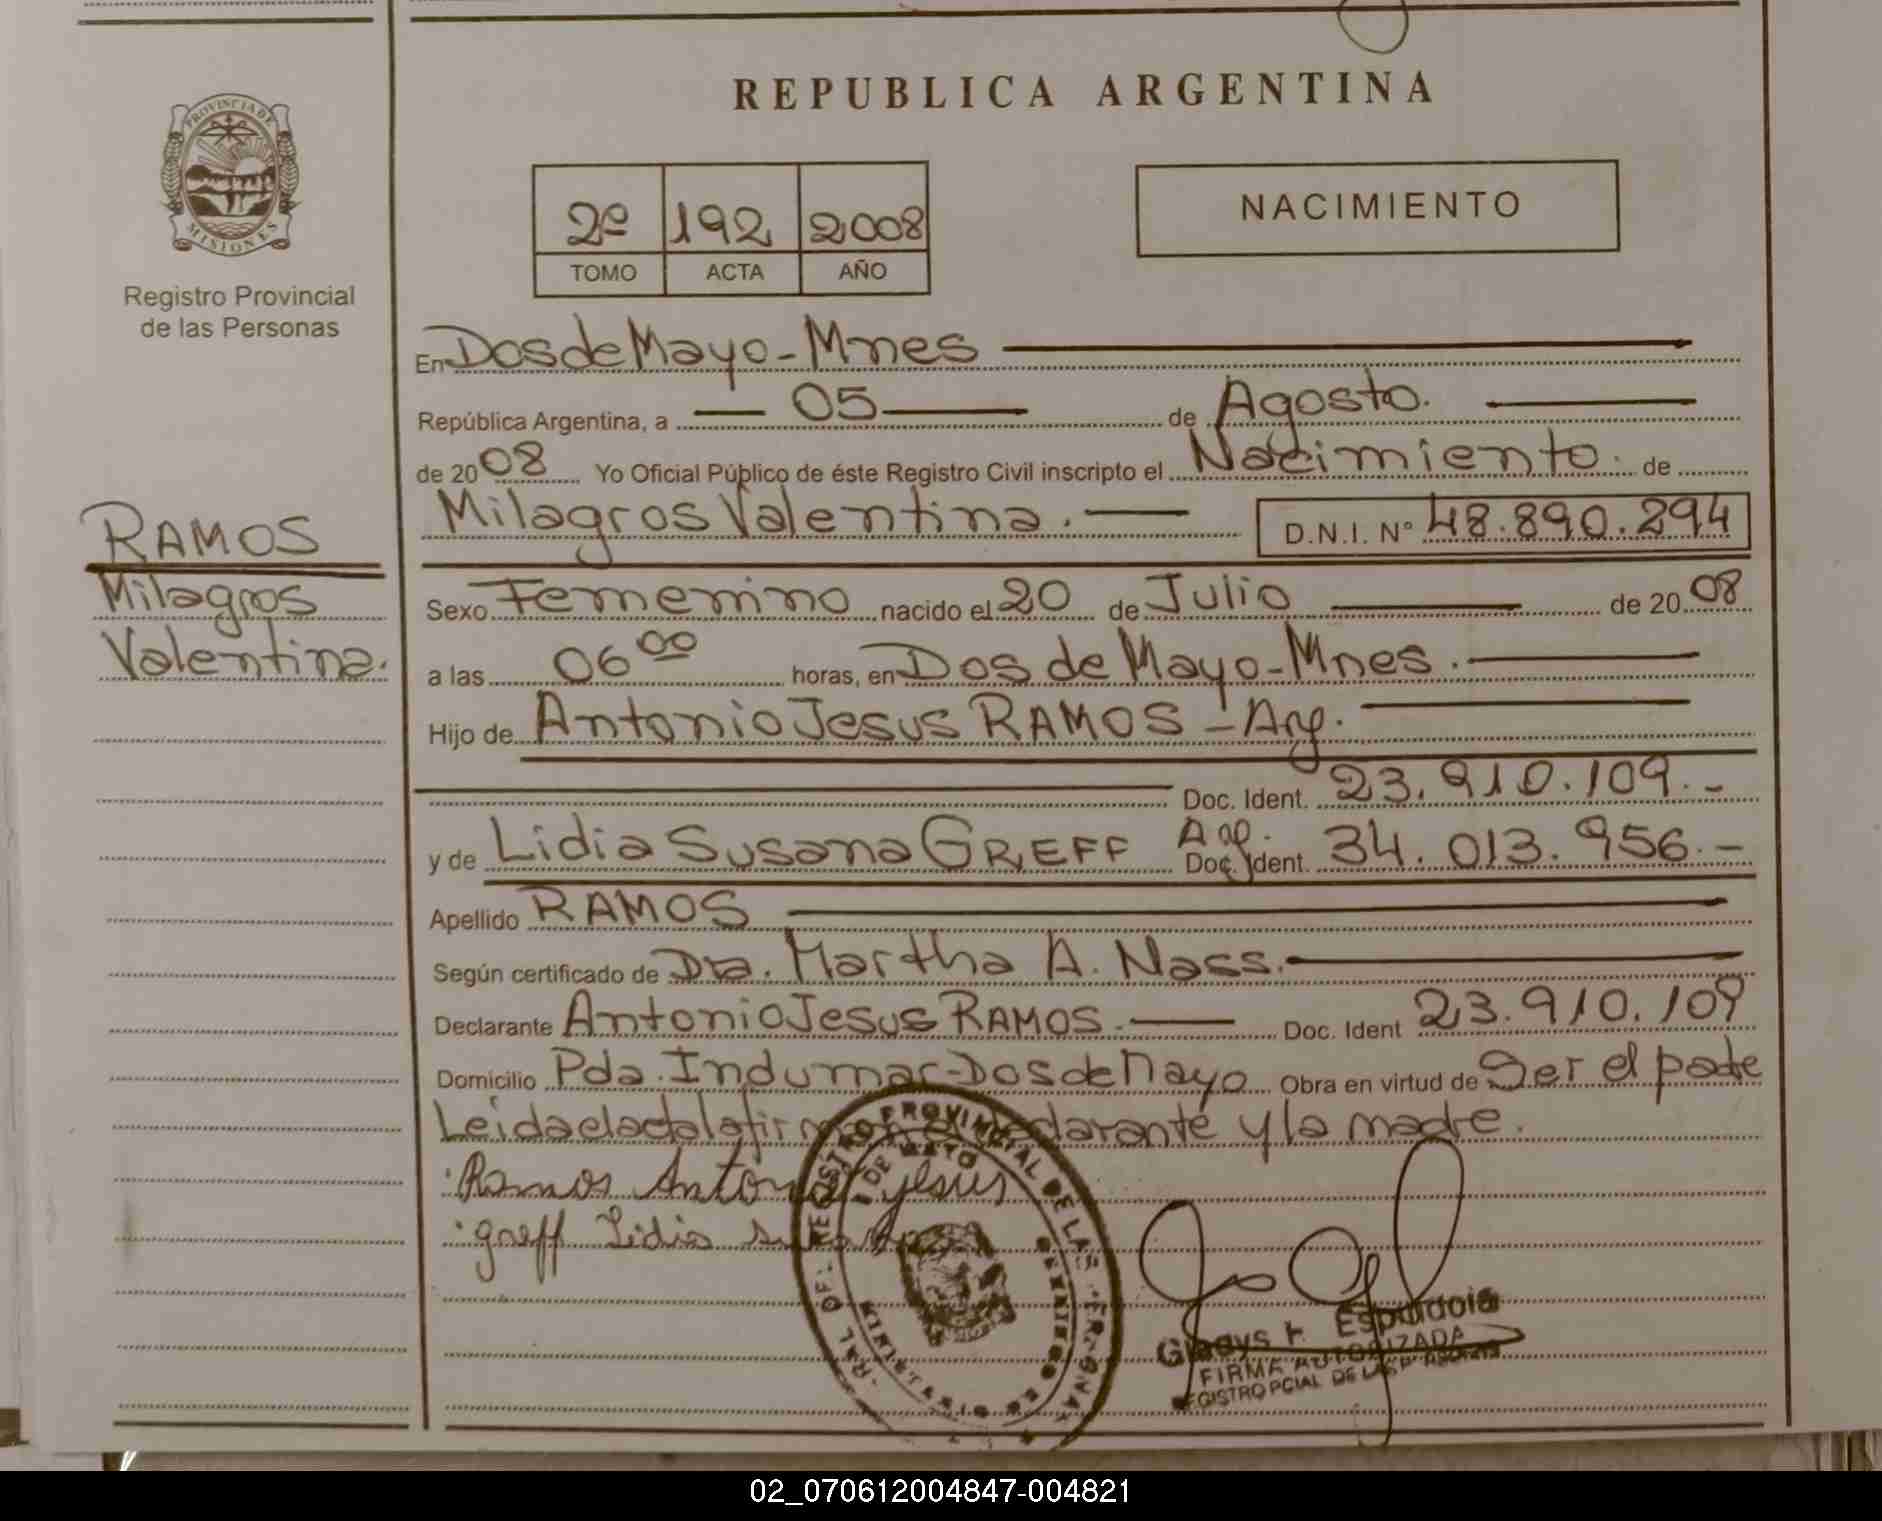 REPUBLICA ARGENTINA
PROVINCIA DE
MISIONES
Registro Provincial
de las Personas
2º 192 2008
TOMO ACTA AÑO
NACIMIENTO
En Dos de Mayo - Mnes
República Argentina, a 05 de Agosto.
de 2008 Yo Oficial Público de éste Registro Civil inscripto el Nacimiento. de
Milagros Valentina. D.N.I. Nº 48.890.294
RAMOS
Milagros
Valentina.
Sexo Femenino nacido el 20 de Julio de 2008
a las 06 00 horas, en Dos de Mayo - Mnes.
Hijo de Antonio Jesus RAMOS - Arg.
Doc. Ident. 23.910.109.-
y de Lidia Susana GREFF Arg. Doc. Ident. 34.013.956.-
Apellido RAMOS
Según certificado de Dra. Martha A. Nass.
Declarante Antonio Jesus RAMOS. Doc. Ident 23.910.109
Domicilio Pda. Indumar - Dos de Mayo Obra en virtud de Ser el padre
Leida el acta la firman el declarante y la madre.
Ramos Antonio Jesus
Greff Lidia Susana
PROVINCIAL DE LAS
DE MAYO
MISIONES
Gladys Espindola
FIRMA AUTORIZADA
REGISTRO PCIAL DE LAS PERSONAS
02_070612004847-004821